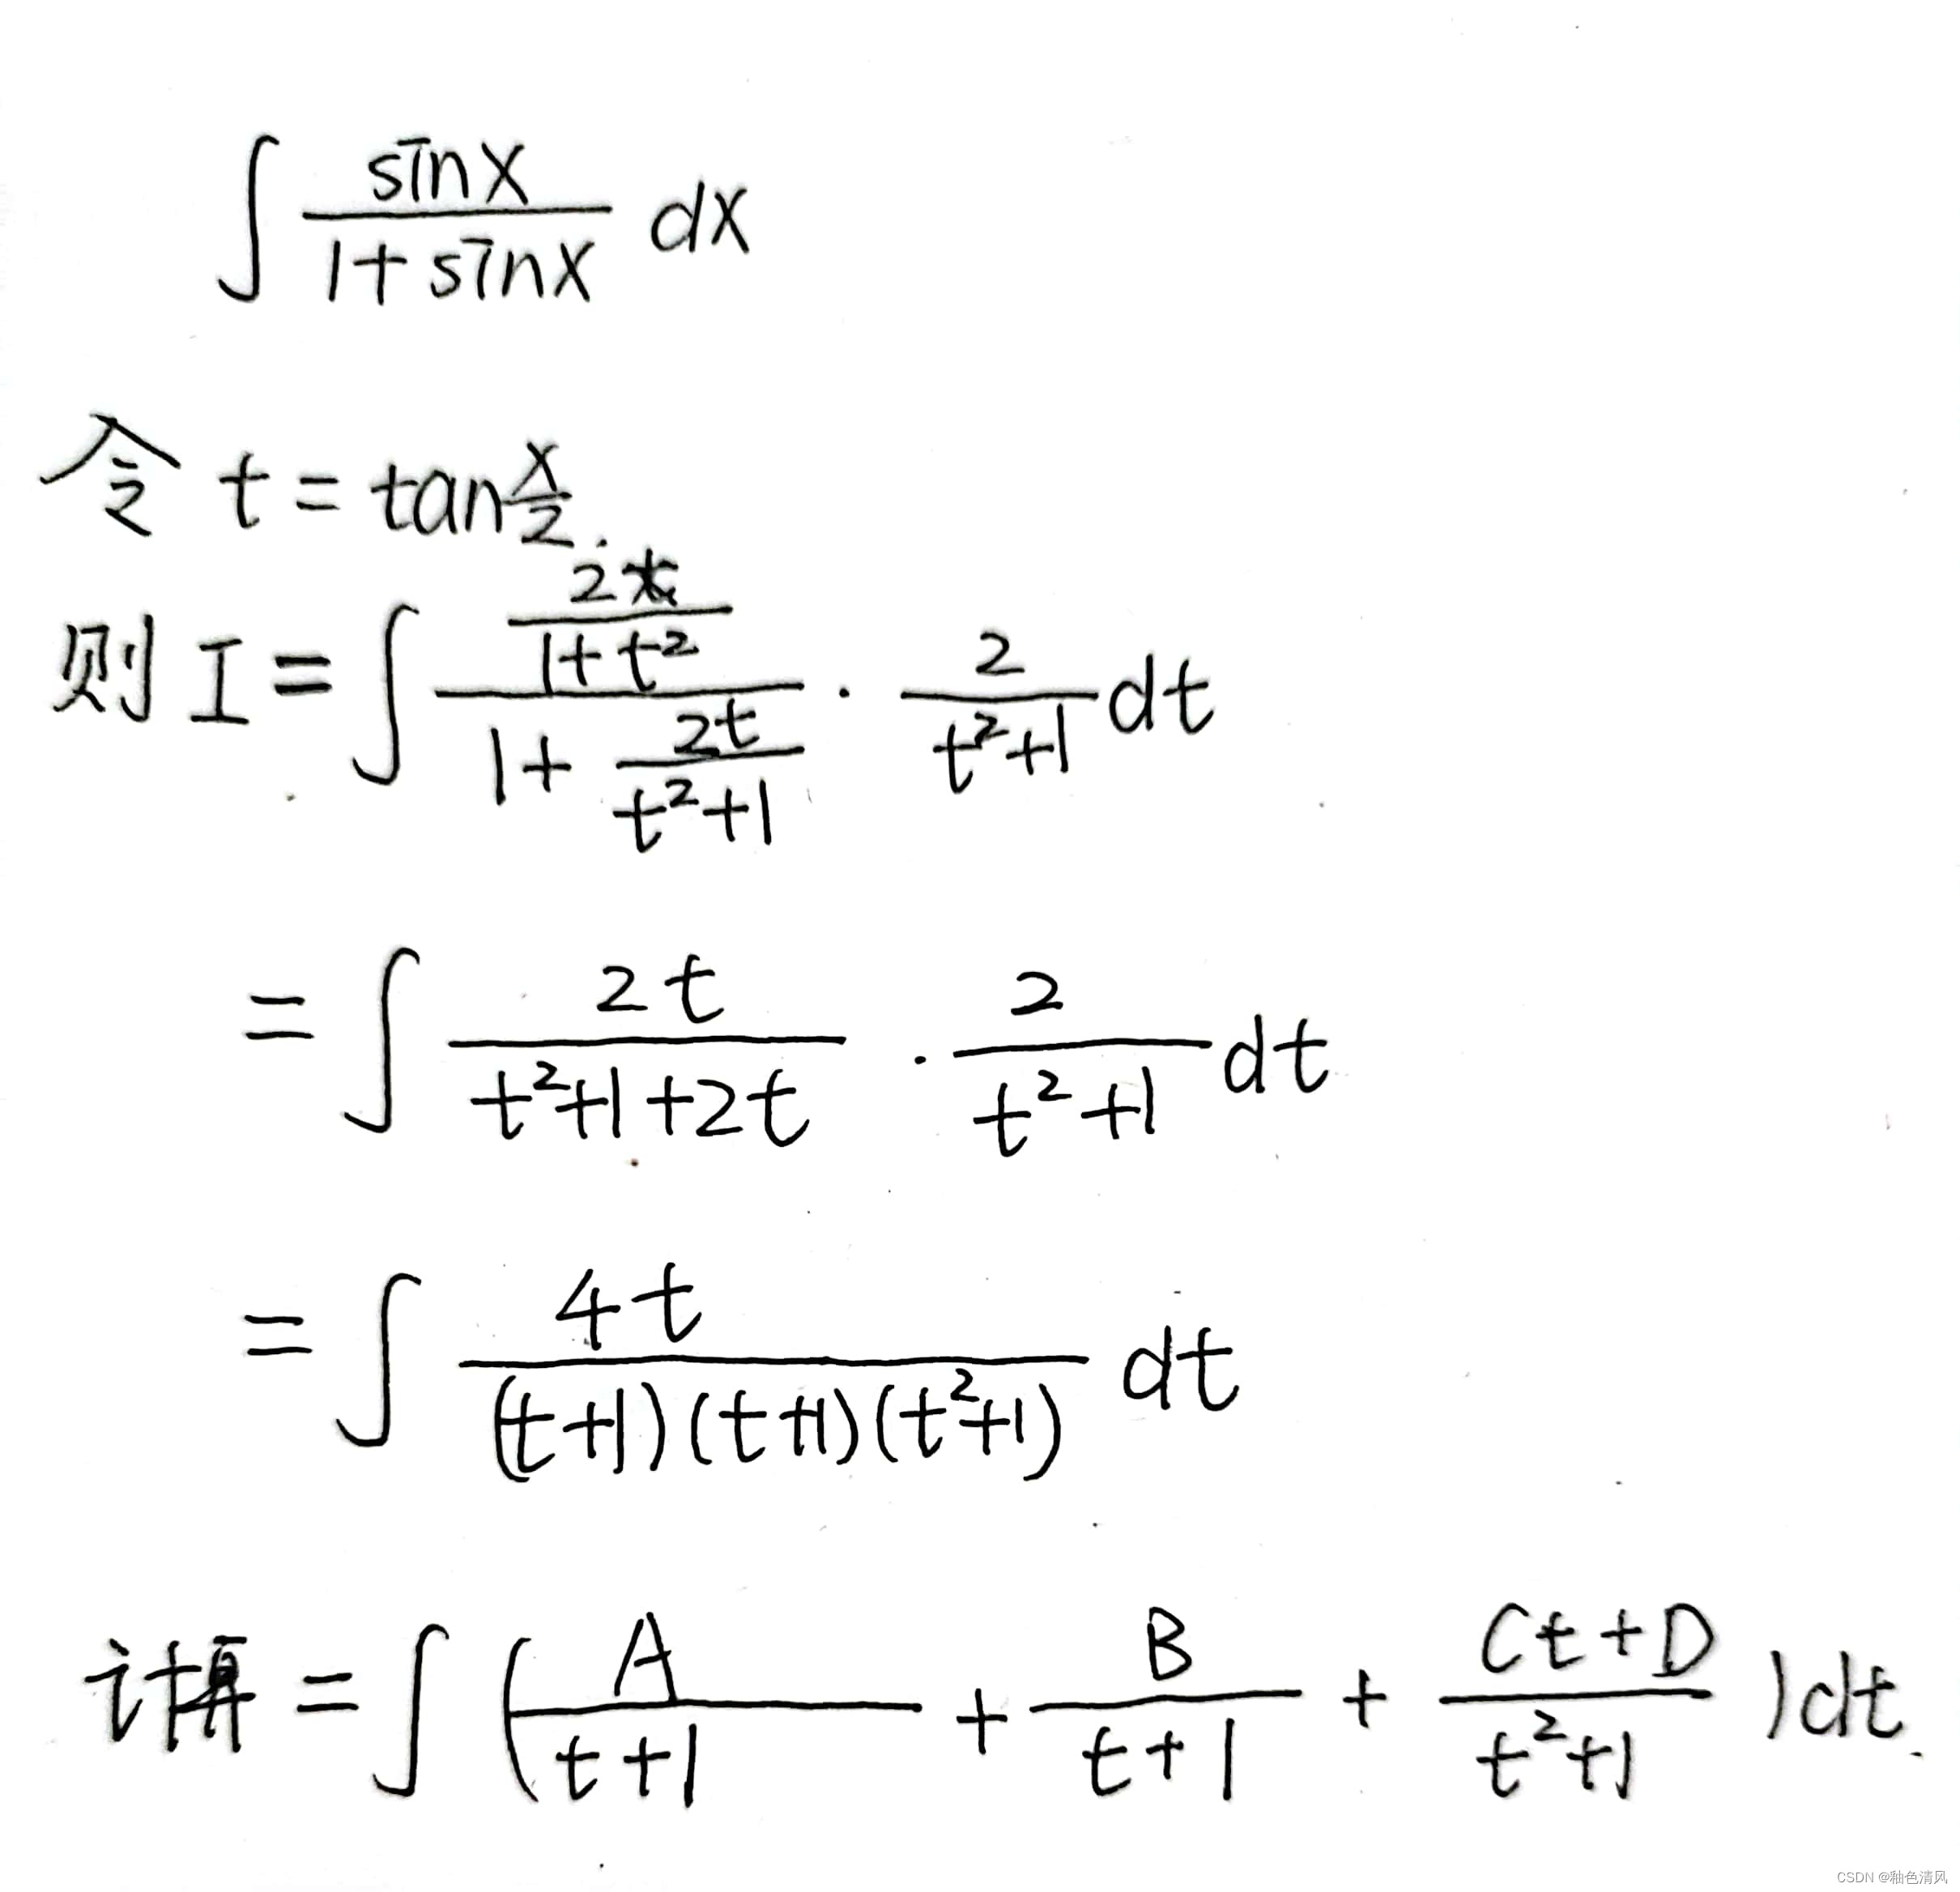 ∫ sinx/(1+sinx) dx
令 t = tan x/2.
则 I = ∫ (2t/(1+t²))/(1+ 2t/(t²+1)) · 2/(t²+1) dt
= ∫ 2t/(t²+1+2t) · 2/(t²+1) dt
= ∫ 4t/((t+1)(t+1)(t²+1)) dt
计算 = ∫ (A/(t+1) + B/(t+1) + (Ct+D)/(t²+1)) dt.
CSDN @釉色清风